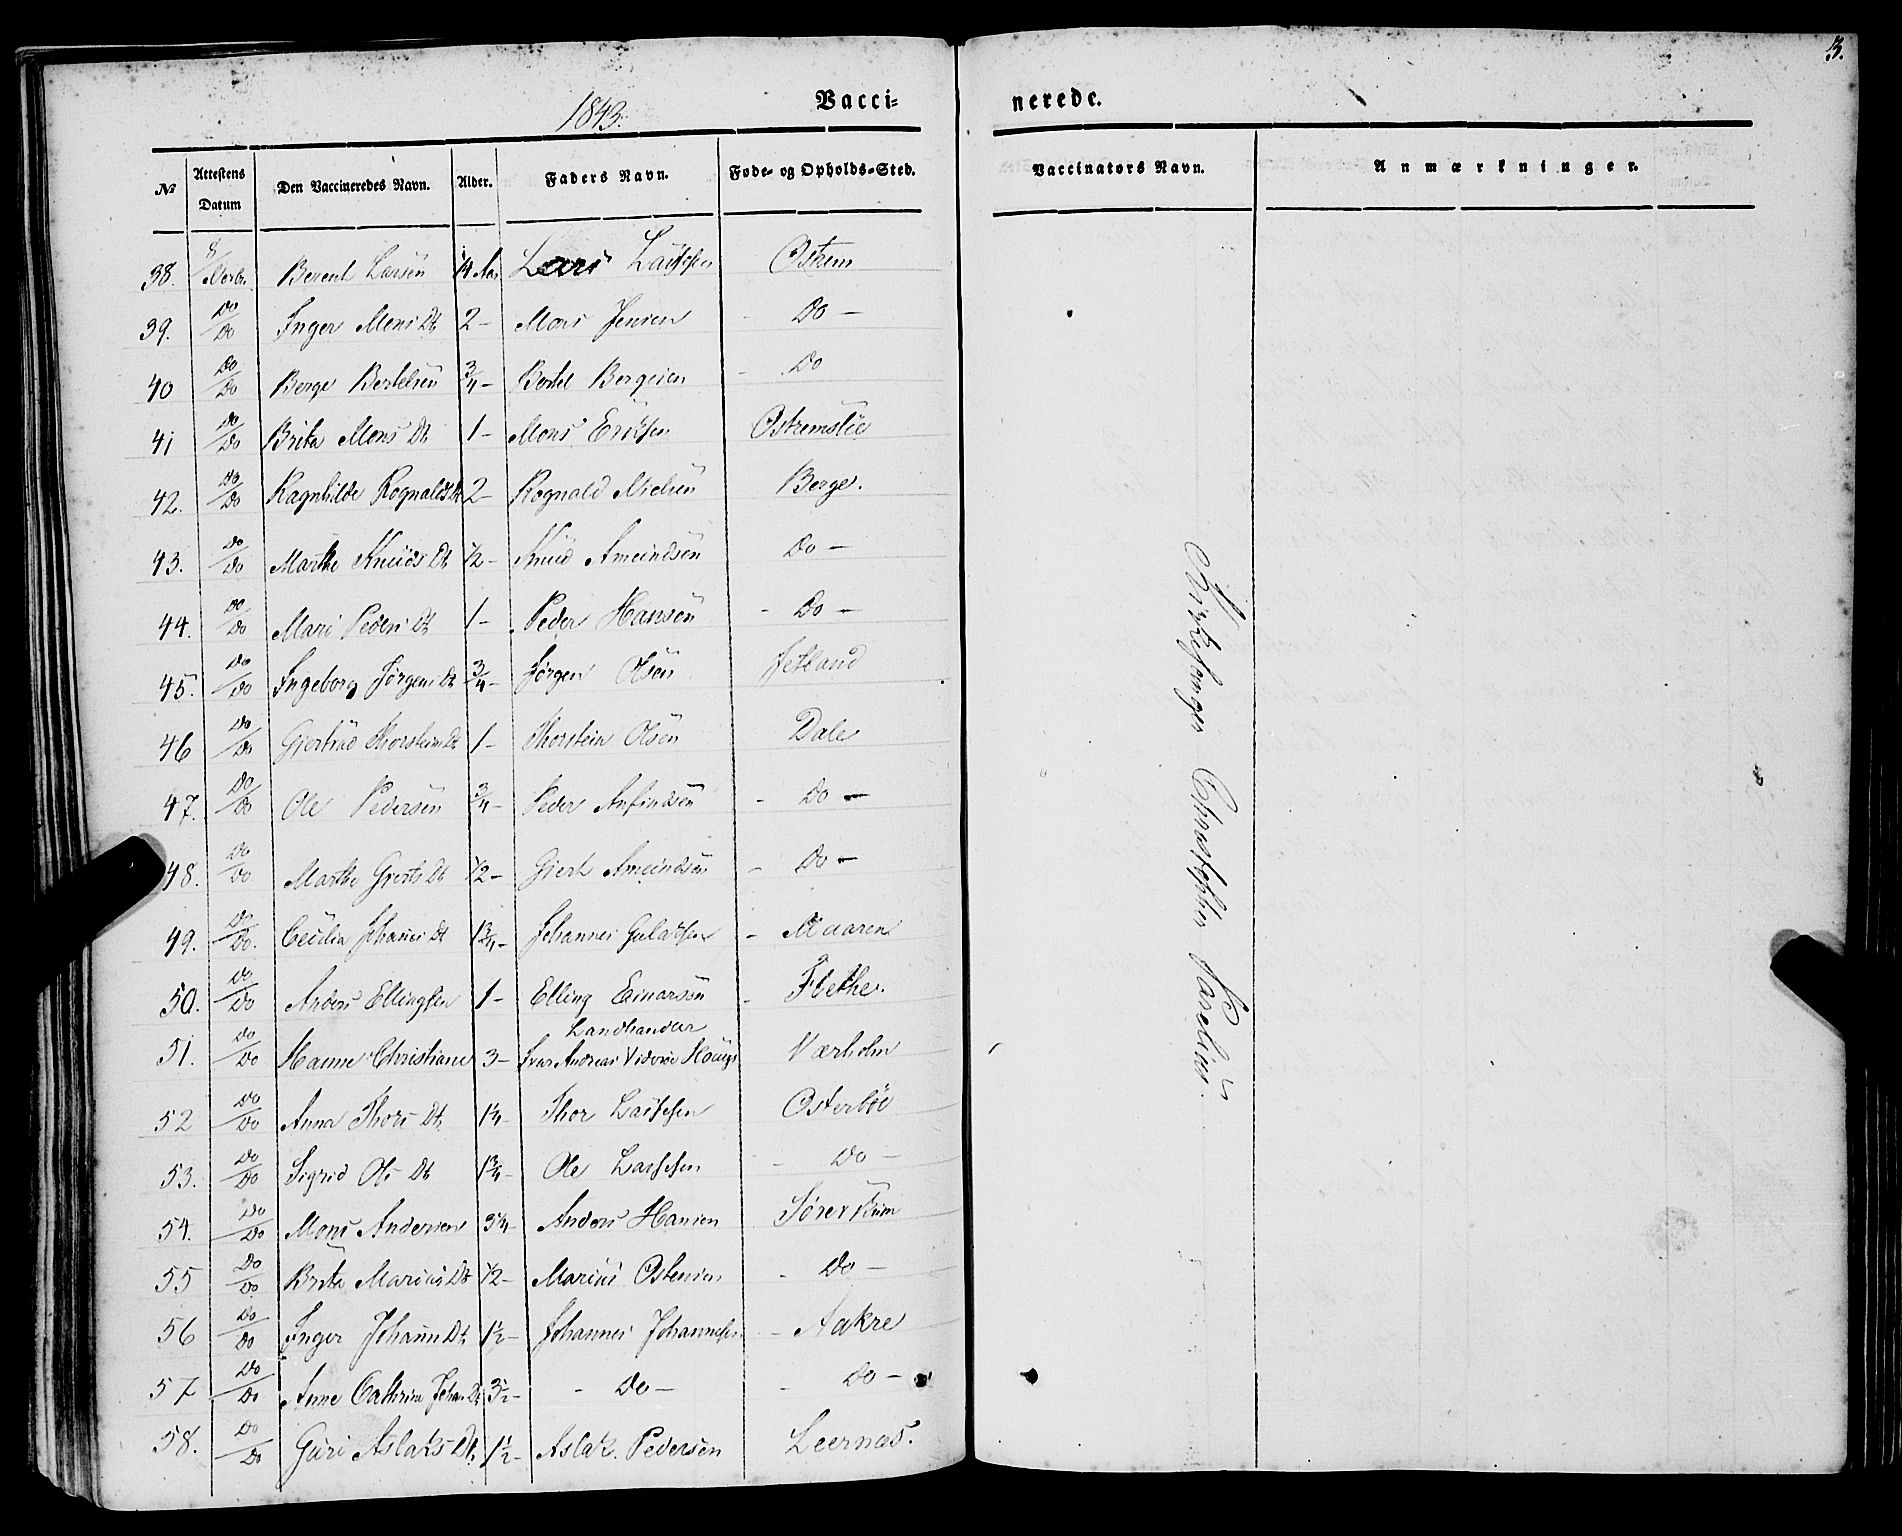 3.
1843.
Vacci-
nerede.
№ Attestens Datum Den Vaccineredes Navn. Alder. Faders Navn. Føde- og Opholds-Sted. Vaccinators Navn. Anmærkninger.
38. 8/ Berent Larsen Lars Larssen Ostrem
39. Do/Do Inger Mons Dt 2 - Mons Jensen Do -
40 Do/Do Berge Bertelsen 3/4 - Bertel Bergesen - Do
41 Do/Do Brita Mons Dt 1 - Mons Eriksen Ostremslie
42. Do/Do Ragnhilde Rognalds Dt 2 - Rognald Nielsen Berge.
43. Do/Do Marthe Knuds Dt 1/2 - Knud Amundsen Do -
44. Do/Do Mari Peders Dt 1 - Peder Hansen - Do -
45. Do/Do Ingeborg Jørgens Dt 3/4 - Jørgen Olsen Jetland
46 Do/Do Gjertrud Thorsteins Dt 1 - Thorstein Olsen Dale
47. Do/Do Ole Pedersen 3/4 - Peder Anfindsen - Do -
48. Do/Do. Marthe Gjerts Dt 1/2 - Gjert Amundsen - Do -
49. Do/Do. Cecilia Johannes Dt 1 3/4 - Johannes - Maaren
50. Do/Do Anders Ellingsen 1 - Elling Einarsen - Flethe.
Landhandler
51. Do/Do Hanne Christiane 3 - Ivar Andreas Værholm
52 Do/Do Anna Thors Dt 1 1/4 - Thor Larssen Osterbøe
53. Do/Do Sigrid Ols Dt 1 3/4 - Ole Larssen - Do -
54. Do/Do Mons Andersen 3 1/4 - Anders Hansen Sørereküm
55 Do/Do Brita Marius Dt 1/2 - Marius Ostensen - Do -
56 Do/Do Inger Johanns Dt 1 1/2 - Johannes Johannessen - Aakre
57 Do/Do Anne Cathrine Johan Dt 3 1/2 - - Do - - Do -
58. Do/Do Guri Aslaks Dt. 1 1/2 - Aslak Pedersen Leernes.
Kirkesanger Christopher